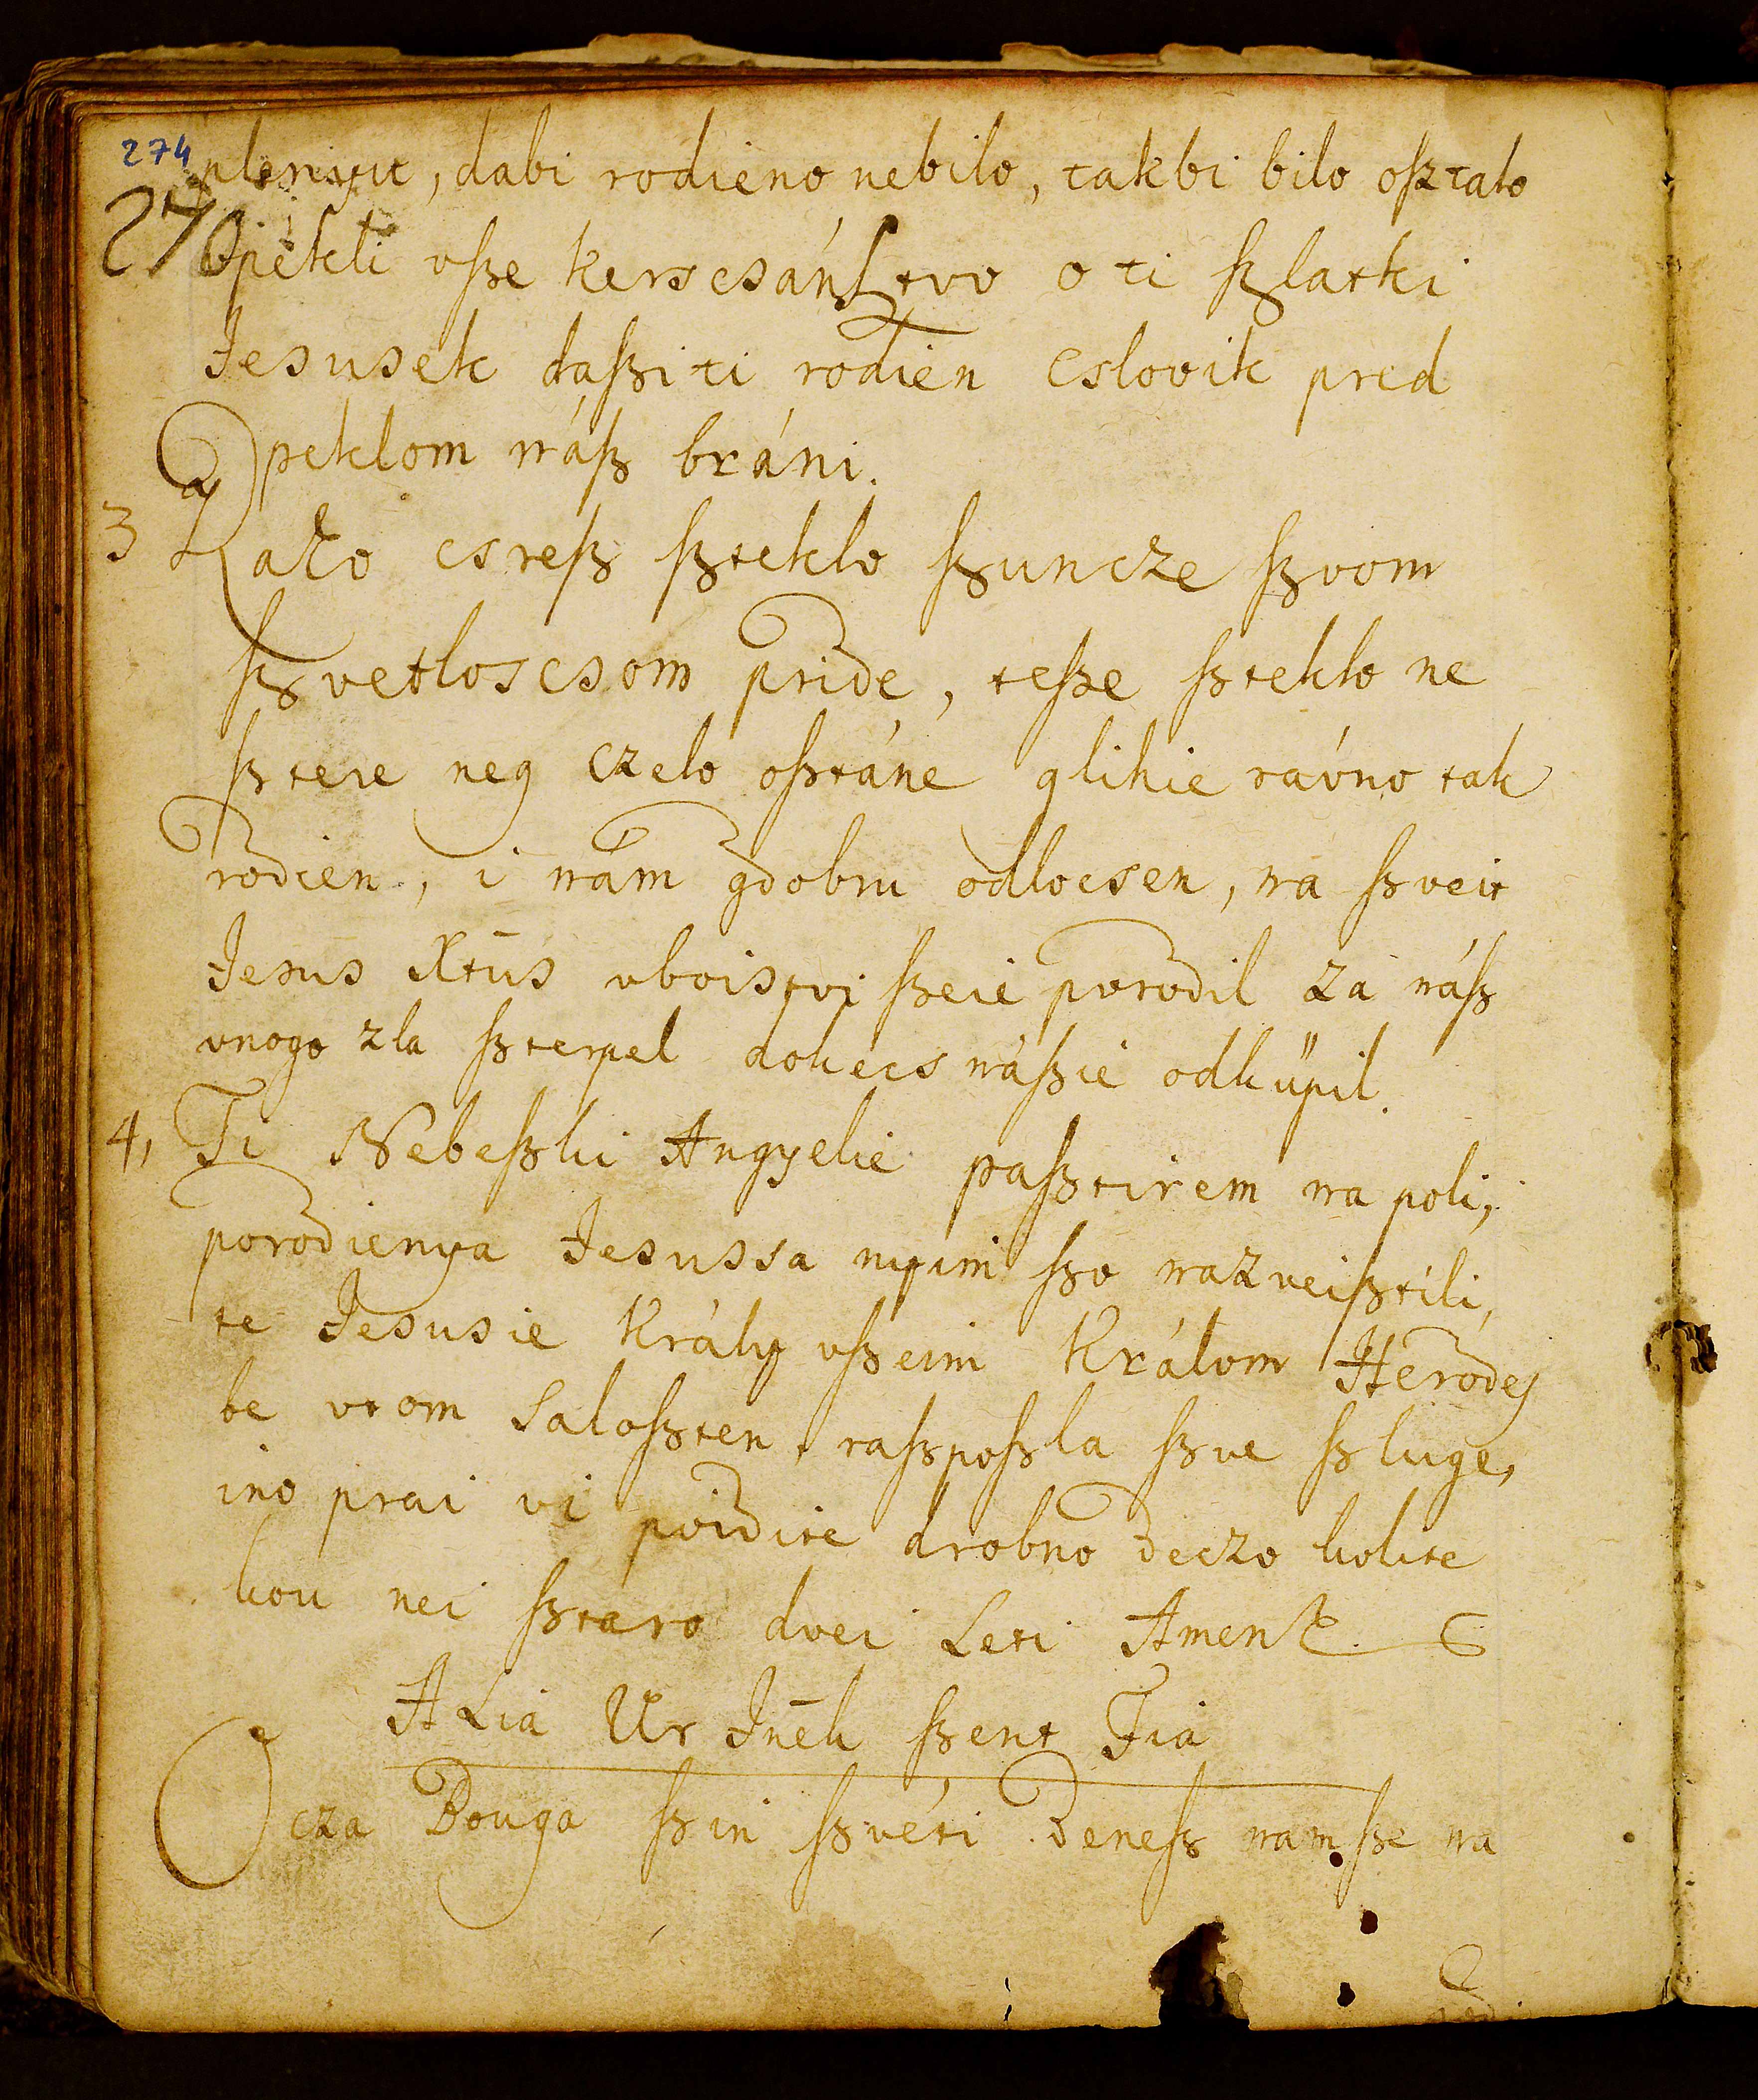 274
plenyu, dabi rodieno nebilo, takbi bilo osztalo
270 pekli vsze kerscsánsztvo o ti szlatki
Jesusek daszi ti rodien cslovik pred
peklom nász bráni.
3 Kako csresz szteklo szuncze szvom
szvetloscsom pride, tesze sztekle ne
sztere neg czelo osztáne glihie rávno tak
rodien, i nám gdobru odlocsen, na szveit
Jesus Xtūs vboistvi szeie porodil za nász
vnogo zla szterpel dokecs nászie odküpil.
4, Ti Nebeszki Angyelie pasztirem na poli,
porodienya Jesussa nyim szo nazveisztili,
te Jesusie Kràly vszeim Králom Herodes
be vtom saloszten, raszposzla szve szluge,
ino prai vi poidite drobno deczo kolite
kou nei sztaro dvei Leti Amen
A Lia Ur Inēk szent Fia
Ocza Bouga szin szvéti denesz nam sze na